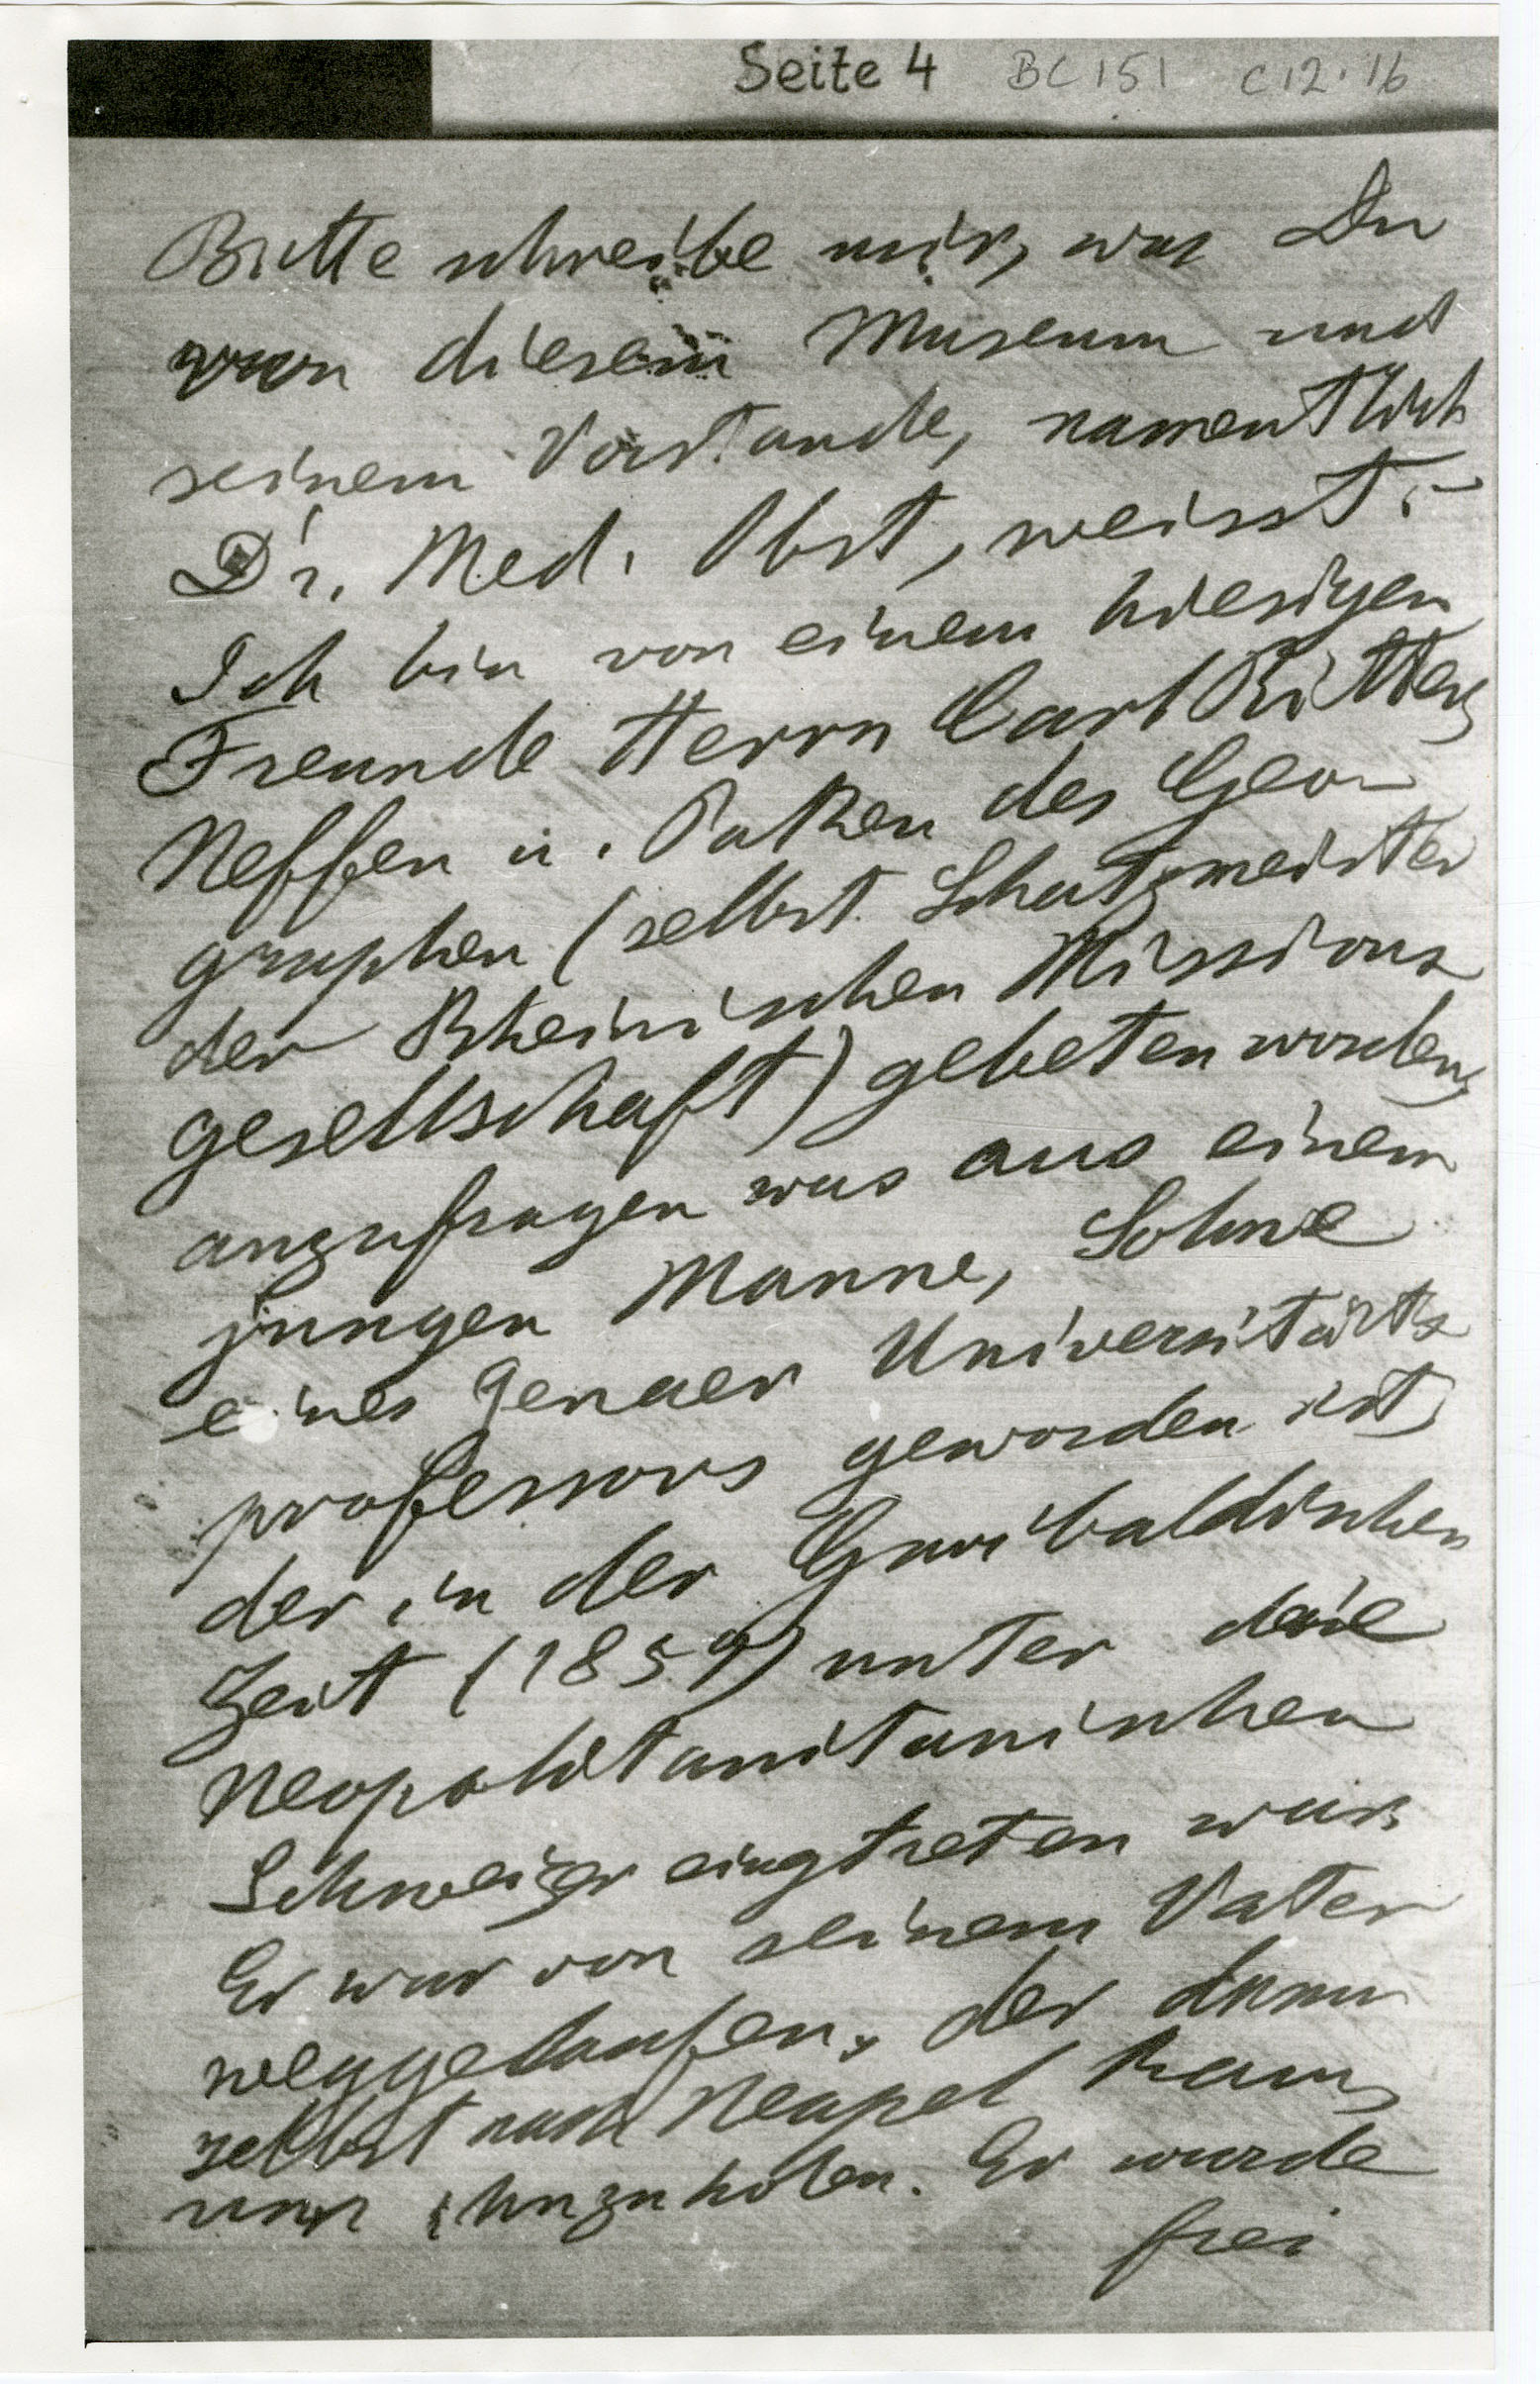 Seite 4 BC 151 C12.16
Bitte schreibe mir, was Du
von diesem Museum und
seinem Vorstande, namentlich
Dr. Med. Obst, weisst. –
Ich bin von einem hiesigen
Freunde Herrn Carl Ritter,
Neffen u. Pathen des Geo-
graphen (selbst Schatzmeister
der Rheinischen Missions
gesellschaft) gebeten worden,
anzufragen was aus einem
jungen Manne, Sohne
eines Jenaer Universitäts
professors geworden ist,
der in der Garibaldischen
Zeit (1859) unter die
Neopolitanitanischen
Schweizer eingtreten war.
Er war von seinem Vater
weggelaufen, der dann
selbst nach Neapel kam,
um ihnzuholen. Er wurde
frei